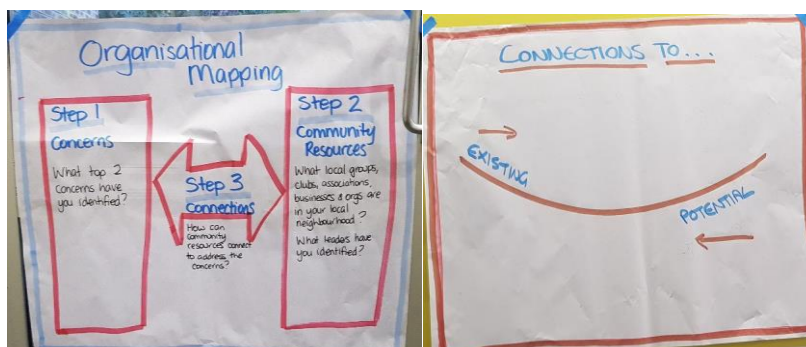 Organisational
Mapping
Step 1
Concerns
What top 2
concerns have
you identified?
Step 3
Connections
How can
community
resources connect
to address the
concerns?
Step 2
Community
Resources
What local groups,
clubs, associations,
businesses & orgs are
in your local
neighbourhood?
What leaders have
you identified?
CONNECTIONS TO...
EXISTING
POTENTIAL